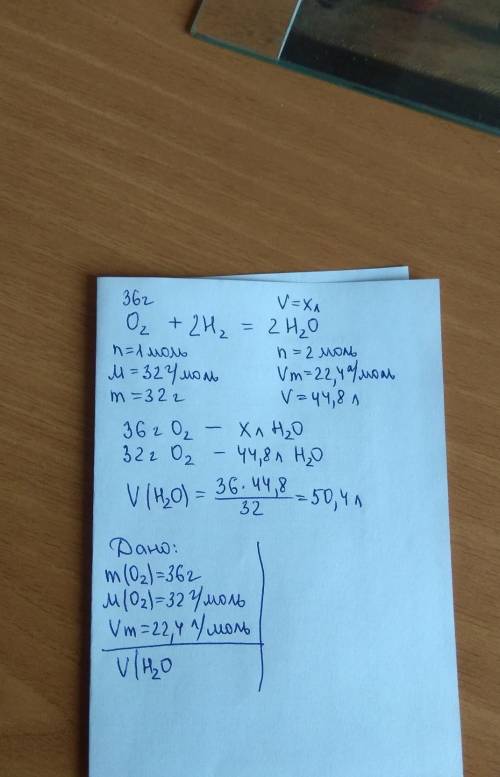 36г V=xл
O₂ + 2H₂ = 2H₂O
n=1моль n=2моль
M=32г/моль Vm=22,4л/моль
m=32г V=44,8л
36г O₂ – xл H₂O
32г O₂ – 44,8л H₂O
V(H₂O) = 36·44,8/32 = 50,4л
Дано:
m(O₂)=36г
M(O₂)=32г/моль
Vm=22,4л/моль
V(H₂O